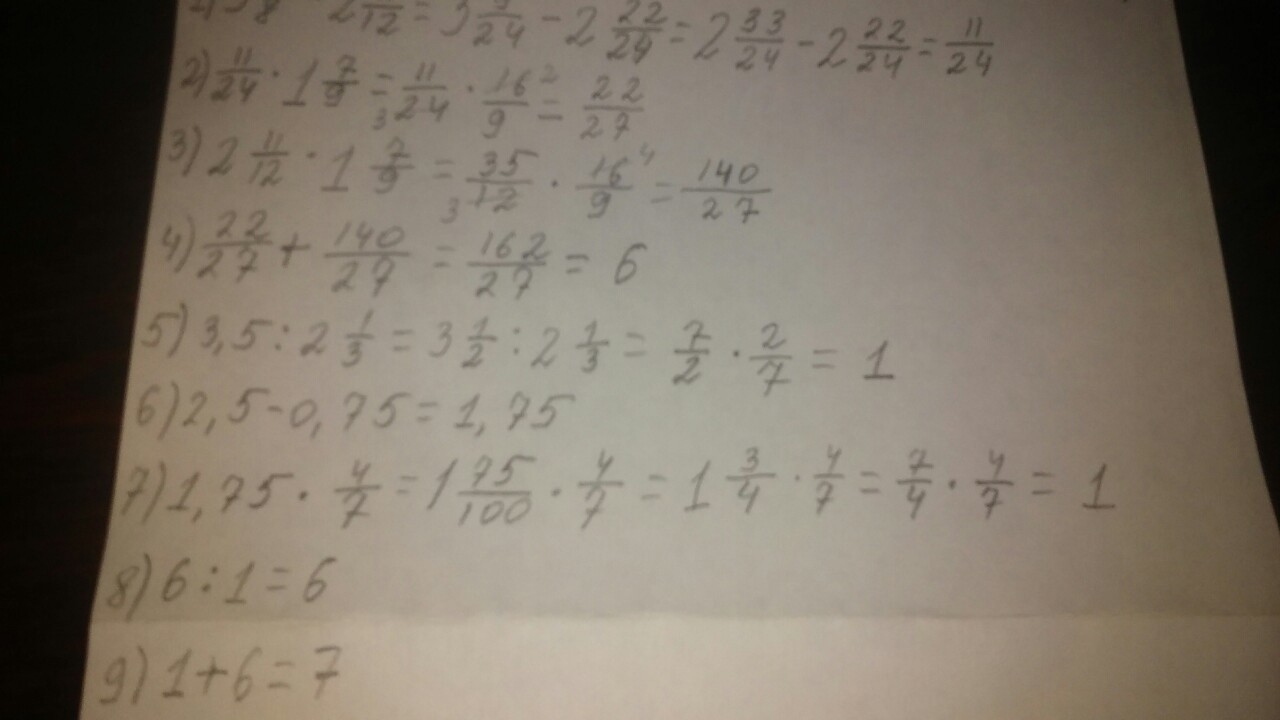 1) 3 3/8 - 2 11/12 = 3 9/24 - 2 22/24 = 2 33/24 - 2 22/24 = 11/24
2) 11/24 · 1 7/9 = 11/24 · 16/9 = 22/27
3) 2 11/12 · 1 7/9 = 35/12 · 16/9 = 140/27
4) 22/27 + 140/27 = 162/27 = 6
5) 3,5 : 2 1/3 = 3 1/2 : 2 1/3 = 7/2 · 2/7 = 1
6) 2,5 - 0,75 = 1,75
7) 1,75 · 4/7 = 1 75/100 · 4/7 = 1 3/4 · 4/7 = 7/4 · 4/7 = 1
8) 6 : 1 = 6
9) 1 + 6 = 7